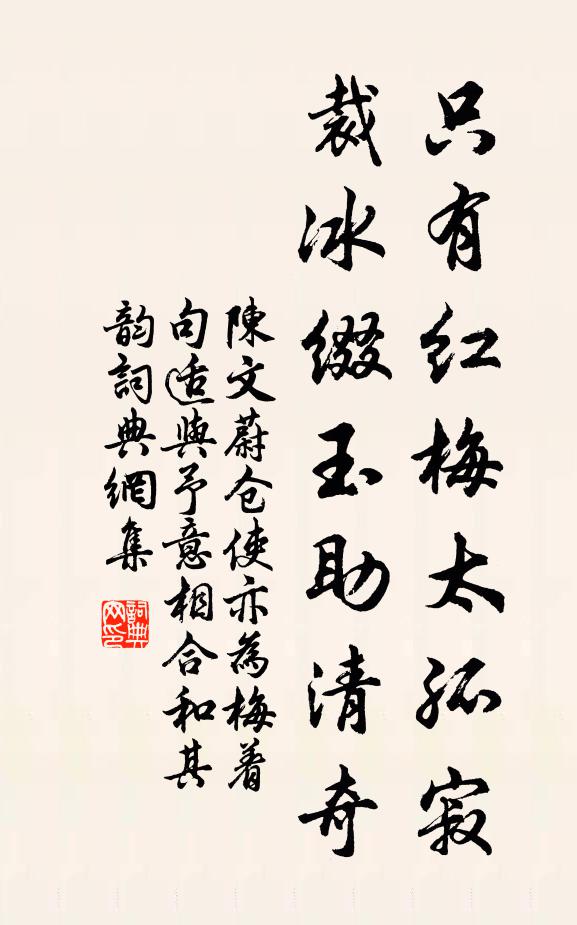 只有红梅太孤寂
裁冰缀玉助清奇
陳文蔚仓使亦為梅着
句适與予意相合和其
韵詞典網集
詞典网印